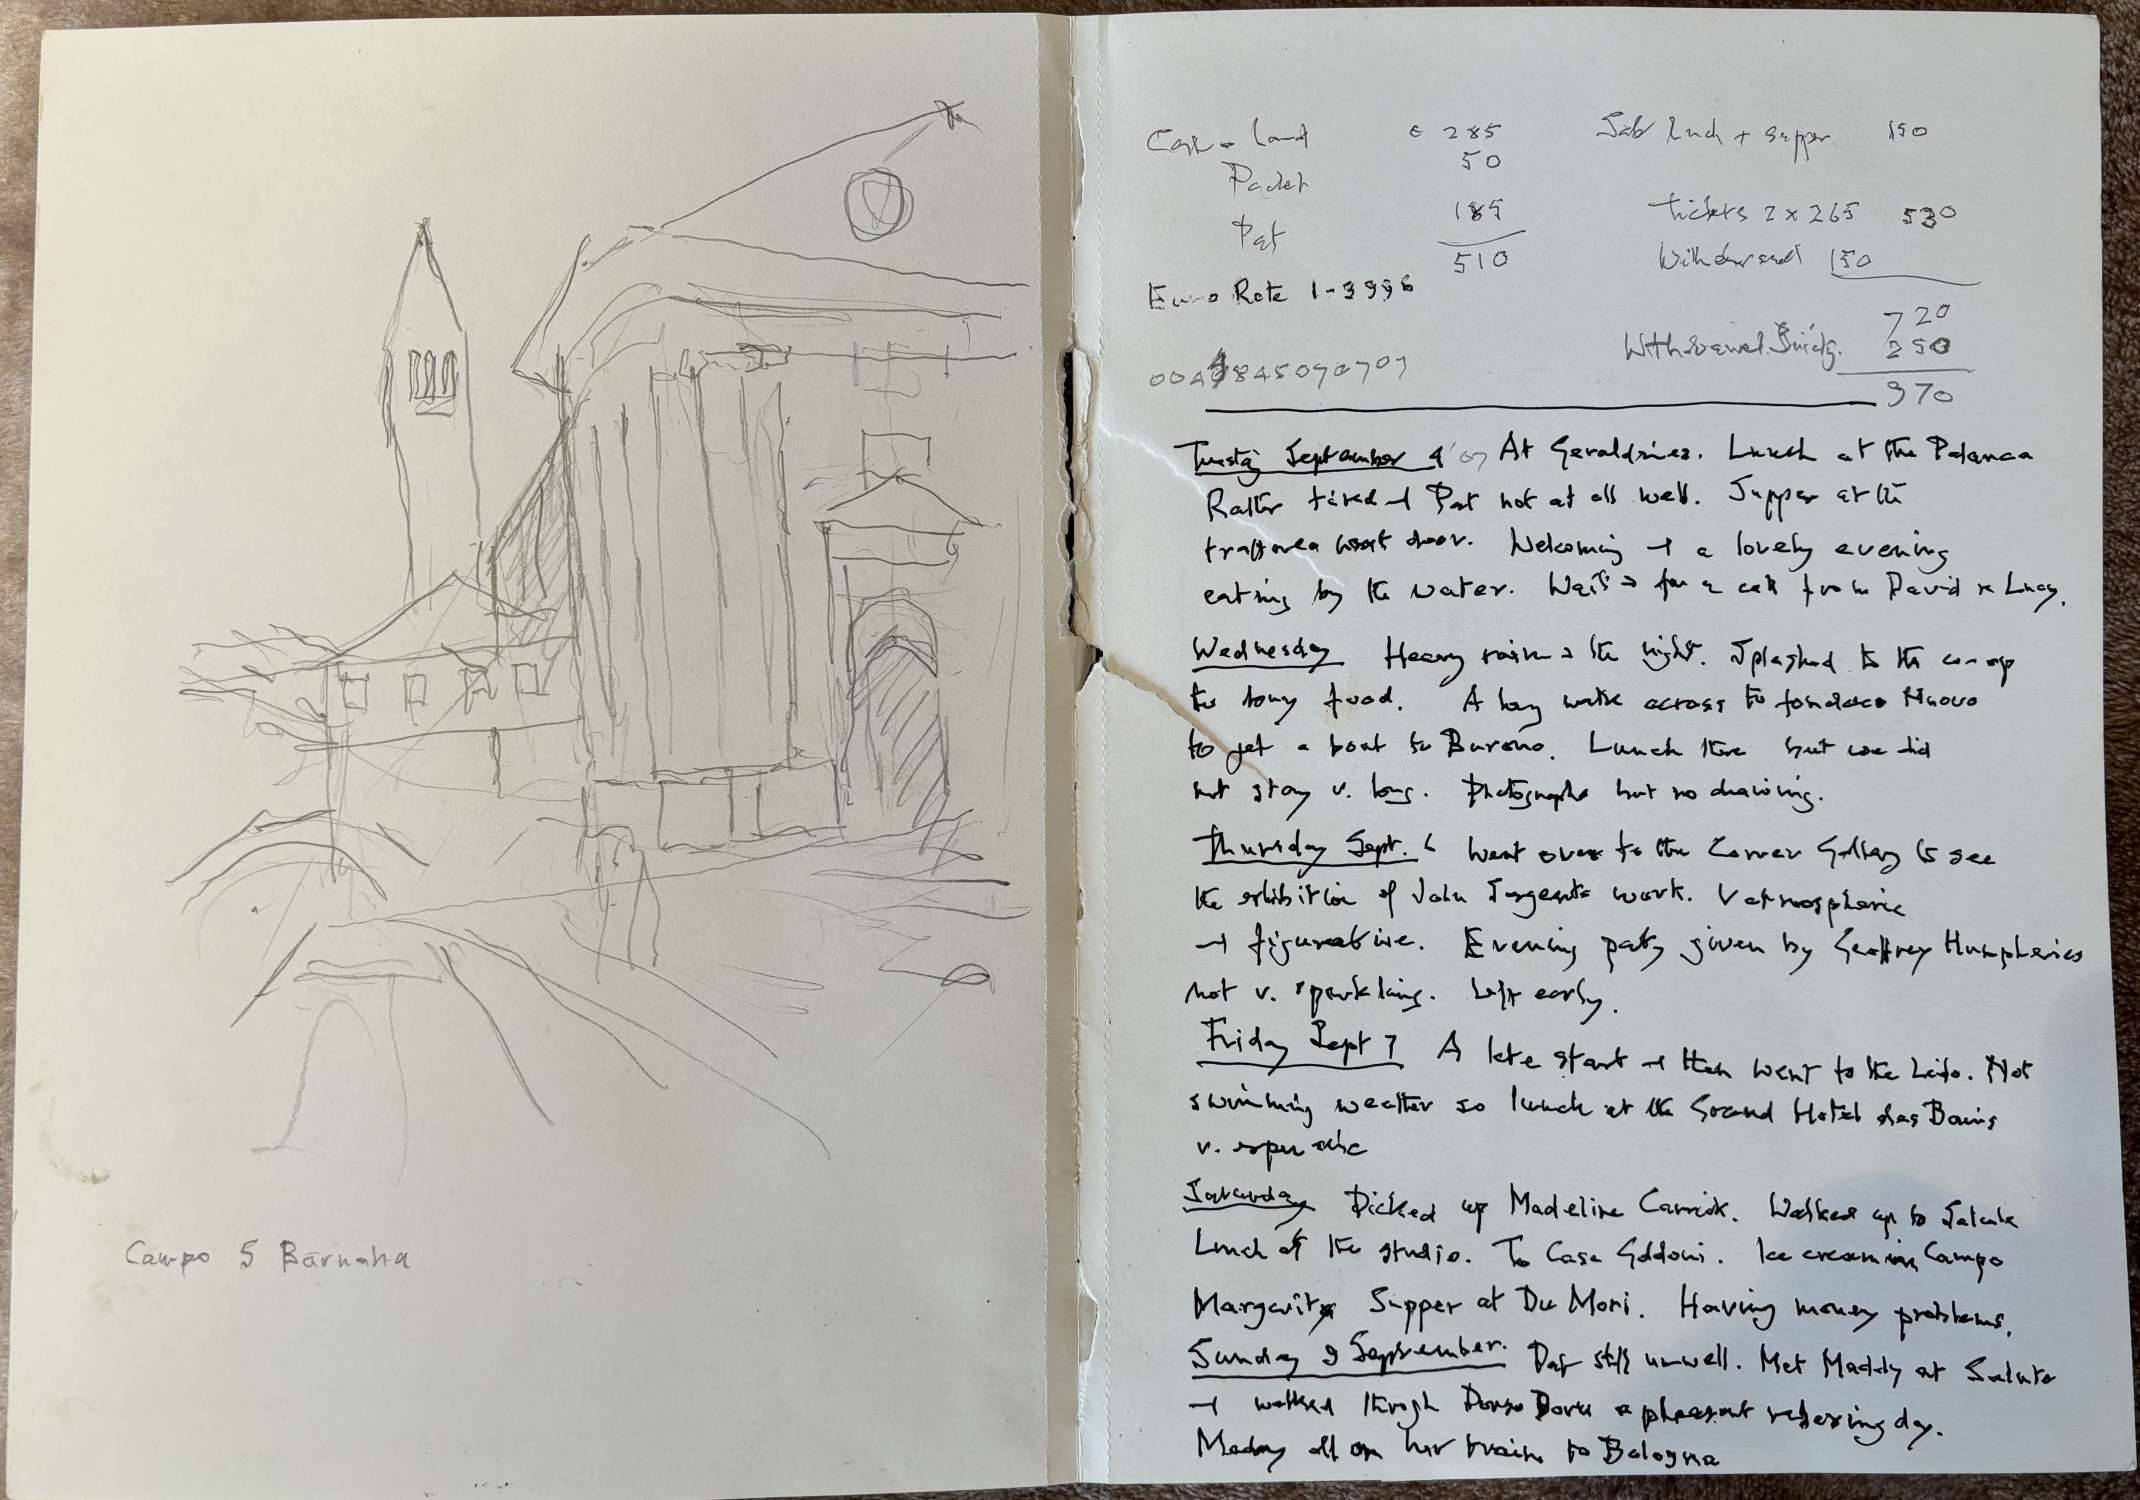 Campo S Barnaba
Cash - hand € 285 Sat lunch + supper 190
Packet 50
Pat 185 tickets 2 x 265 530
510 Withdrawal 150
Euro Rate 1-3996
720
Withdrawal 250
00 845090709
970
Tuesday September 4 '07 At Geraldines. Lunch at the Palanca
Rather tired & Pat not at all well. Supper at the
trattorea next door. Welcoming & a lovely evening
eating by the water. Waiting for a call from David & Lucy.
Wednesday Heavy rain in the night. Splashed to the co-op
to buy food. A long walk across to fondaco Nuovo
to get a boat to Burano. Lunch there but we did
not stay v. long. Photographs but no drawing.
Thursday Sept. 6 Went over to the Correr Gallery to see
the exhibition of John Sargents work. V atmospheric
& figurative. Evening party given by Geoffrey Humpheries
not v. sparkling. Left early.
Friday Sept 7 A late start & then went to the Lido. Not
swimming weather so lunch at the Grand Hotel des Bains
v. expensive
Saturday Picked up Madeline Carrick. Walked up to Salute
Lunch at the studio. To Casa Goldoni. Ice cream in Campo
Margarita Supper at Du Mori. Having money problems.
Sunday 9 September. Pat still unwell. Met Maddy at Salute
& walked through Dorso Doro a pleasant relaxing day.
Maddy off on her train to Bologna